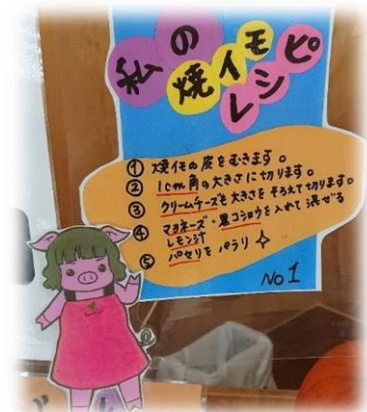 私の
焼イモ
レシピ
① 焼イモの皮をむきます。
② 1cm角の大きさに切ります。
③ クリームチーズも大きさをそろえて切ります。
④ マヨネーズ・黒コショウを入れて混ぜる
レモン汁
⑤ パセリをパラリ
No 1